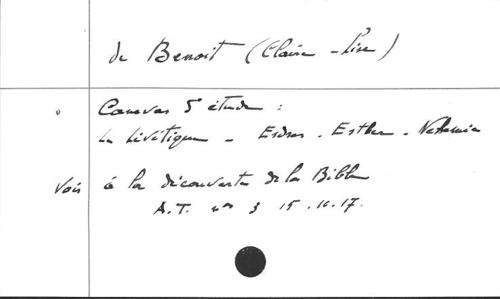 de Benoit (Claire-Lise)
Canevas d'étude :
Le Lévitique - Esdras - Esther - Néhémie
Voir à la découverte de la Bible
A.T. nos 3 15.16.17.